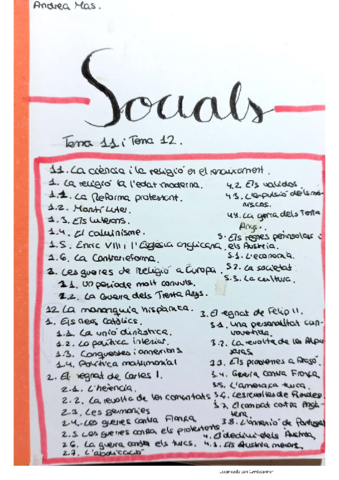 Andrea Mas.
Socials
Tema 11 i Tema 12.
11. La ciència i la religió en el renaixement.
1. La religió a l'edat moderna.
1.1. La Reforma protestant.
1.2. Martí Luter.
1.3. Els luterans.
1.4. El calvinisme.
1.5. Enric VIII i l'Església anglicana.
1.6. La Contrareforma.
2. Les guerres de Religió a Europa.
2.1. Un període molt convuls.
2.2. La Guerra dels Trenta Anys.
12. La monarquia hispànica.
1. Els Reis Catòlics.
1.1. La unió dinàstica.
1.2. La política interior.
1.3. Conquestes i annexions
1.4. Política matrimonial
2. El regnat de Carles I.
2.1. L'herència.
2.2. La revolta de les comunitats
2.3. Les germanies
2.4. Les guerres contra França
2.5 Les guerres contra els protestants
2.6. La guerra contra els turcs.
2.7. L'abdicació
3. El regnat de Felip II.
3.1. Una personalitat controvertida.
3.2. La revolta de les Alpujarras.
3.3. Els problemes a Aragó.
3.4. Guerra contra França.
3.5. L'amenaça turca.
3.6. Les revoltes de Flandes.
3.7. El combat contra Anglaterra.
3.8. L'annexió de Portugal
4. El declivi dels Àustria.
4.1. Els Àustria menors.
4.2. Els validos.
4.3. L'expulsió dels moriscos.
4.4. La guerra dels Trenta Anys.
5. Els regnes peninsulars i els Àustria.
5.1. L'economia.
5.2. La societat
5.3. La cultura.